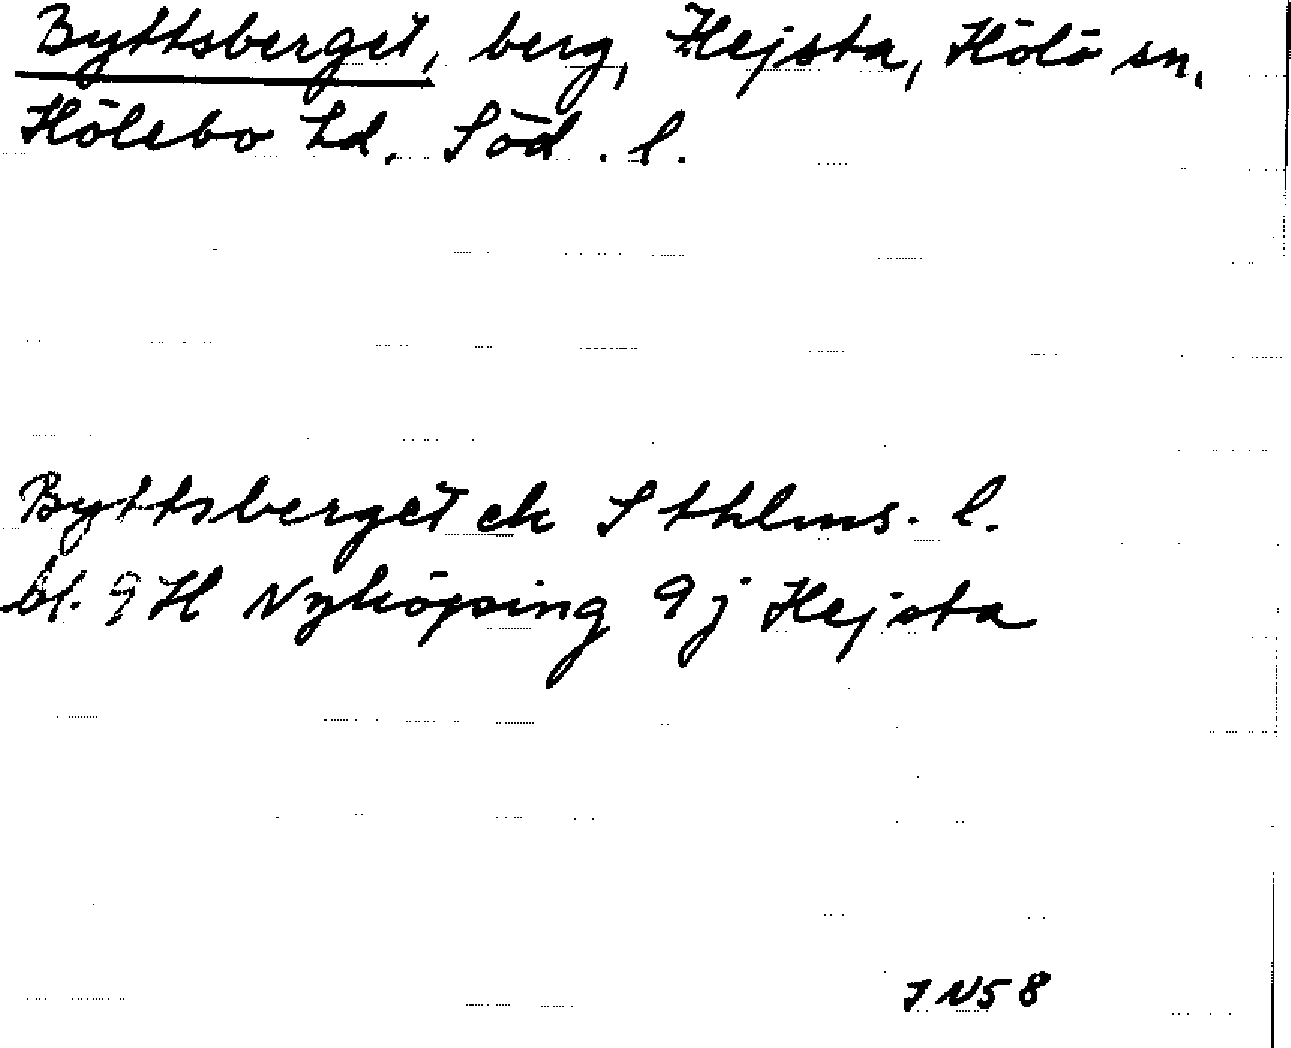 Byttsberget, berg, Hejsta, Hölö sn,
Hölebo hd, Söd. l.
Byttsberget ek Sthlms. l.
bl. 9 H Nyköping 9 j Hejsta
J N58